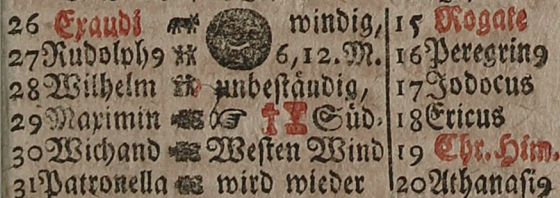 26 Exaudi windig, 15 Rogate
27 Rudolph9 6, 12. M. 16 Peregrin9
28 Wilhelm unbeständig, 17 Jodocus
29 Maximin Süd- 18 Ericus
30 Wichand Westen Wind 19 Chr. Him.
31 Patronella wird wieder 20 Athanasi9